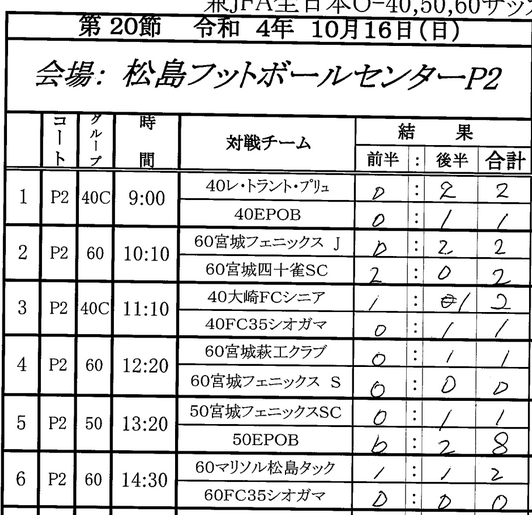 兼JFA全日本O-40,50,60サッ
第 20節 令和 4年 10月16日(日)
会場: 松島フットボールセンターP2
コート グループ 時間 対戦チーム 結果
前半 : 後半 合計
1 P2 40C 9:00 40レ・トラント・プリュ 0 : 2 2
40EPOB 0 : 1 1
2 P2 60 10:10 60宮城フェニックス J 0 : 2 2
60宮城四十雀SC 2 : 0 2
3 P2 40C 11:10 40大崎FCシニア 1 : 1 2
40FC35シオガマ 0 : 1 1
4 P2 60 12:20 60宮城萩工クラブ 0 : 1 1
60宮城フェニックス S 0 : 0 0
5 P2 50 13:20 50宮城フェニックスSC 0 : 1 1
50EPOB 6 : 2 8
6 P2 60 14:30 60マリソル松島タック 1 : 1 2
60FC35シオガマ 0 : 0 0